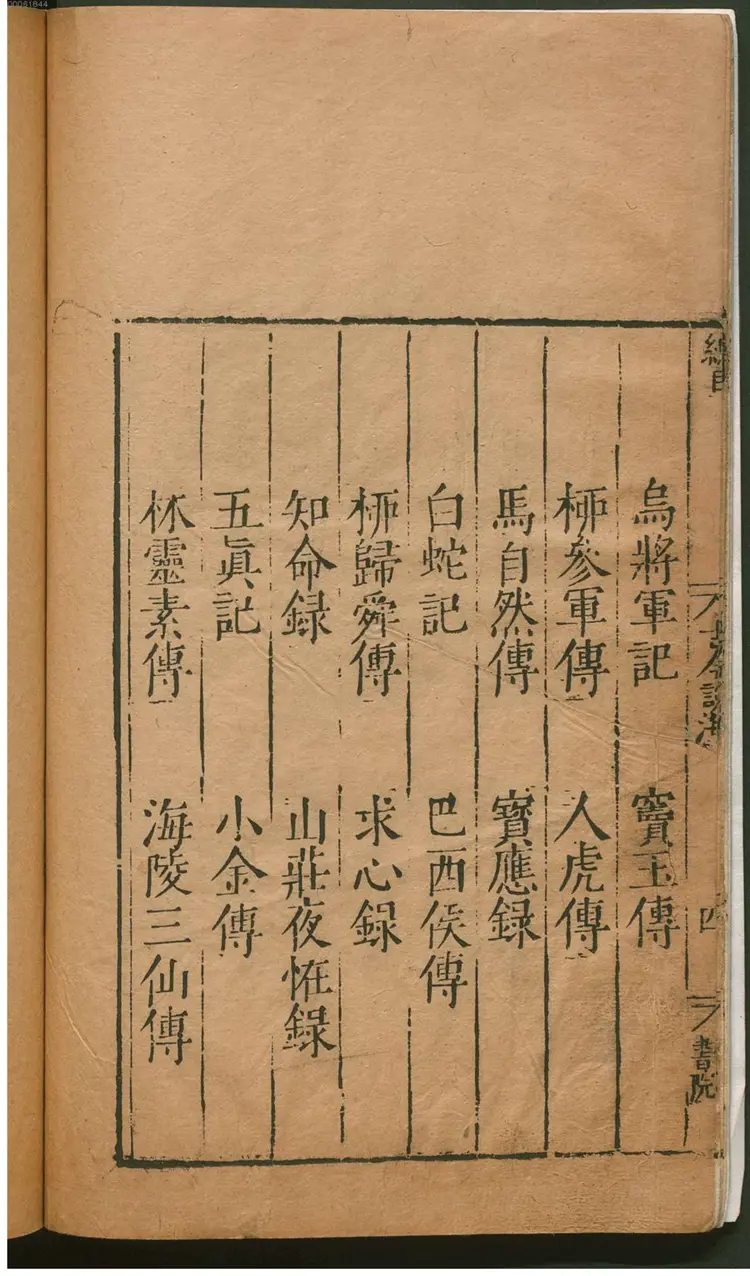 總目
古今說海
四
書院
烏將軍記 竇玉傳
桺參軍傳 人虎傳
馬自然傳 寶應録
白蛇記 巴西侯傳
桺歸舜傳 求心録
知命録 山莊夜恠録
五眞記 小金傳
林靈素傳 海陵三仙傳
00061844